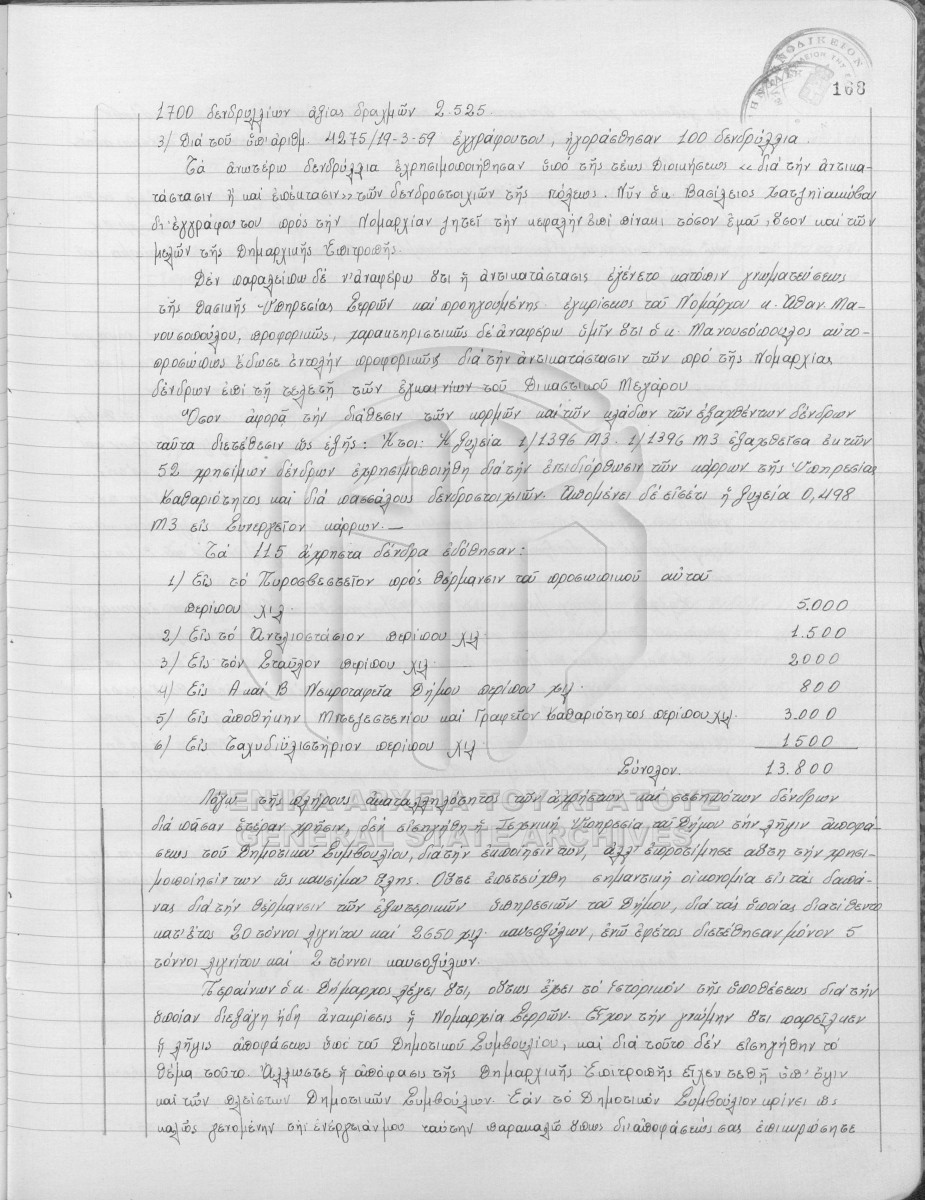 168
1700 δενδρυλλίων ἀξίας δραχμῶν 2.525.
3/ Διά τοῦ ὑπ' ἀριθμ. 4275/19-3-59 ἐγγράφου του, ἠγοράσθησαν 100 δενδρύλλια.
Τά ἀνωτέρω δενδρύλλια ἐχρησιμοποιήθησαν ὑπό τῆς τέως Διοικήσεως «διά τήν ἀντικα-
τάστασιν ἤ καί ἐπέκτασιν» τῶν δενδροστοιχιῶν τῆς πόλεως. Νῦν ὁ κ. Βασίλειος Χατζηϊακώβου
δι' ἐγγράφου του πρός τήν Νομαρχίαν ζητεῖ τήν κεφαλήν ἐπί πίνακι τόσον ἐμοῦ, ὅσον καί τῶν
μελῶν τῆς Δημαρχικῆς Ἐπιτροπῆς.
Δέν παραλείπω δέ ν' ἀναφέρω ὅτι ἡ ἀντικατάστασις ἐγένετο κατόπιν γνωματεύσεως
τῆς Δασικῆς Ὑπηρεσίας Σερρῶν καί προηγουμένης ἐγκρίσεως τοῦ Νομάρχου κ. Ἀθαν. Μα-
νουσοπούλου, προφορικῶς, χαρακτηριστικῶς δέ ἀναφέρω ὑμῖν ὅτι ὁ κ. Μανουσόπουλος αὐτο-
προσώπως ἔδωσε ἐντολήν προφορικῶς διά τήν ἀντικατάστασιν τῶν πρό τῆς Νομαρχίας
δένδρων ἐπί τῇ τελετῇ τῶν ἐγκαινίων τοῦ Δικαστικοῦ Μεγάρου
Ὅσον ἀφορᾷ τήν διάθεσιν τῶν κορμῶν καί τῶν κλάδων τῶν ἐξαχθέντων δένδρων
ταῦτα διετέθεσιν ὡς ἑξῆς: Ἤτοι: Ἡ ξυλεία 1/1396 Μ3. 1/1396 Μ3 ἐξαχθεῖσα ἐκ τῶν
52 χρησίμων δένδρων ἐχρησιμοποιήθη διά τήν ἐπιδιόρθωσιν τῶν κάρρων τῆς Ὑπηρεσίας
Καθαριότητος καί διά πασσάλους δενδροστοιχιῶν. Ἀπομένει δέ εἰσέτι ἡ ξυλεία 0,498
Μ3 εἰς Συνεργεῖον κάρρων.—
Τά 115 ἄχρηστα δένδρα ἐδόθησαν:
1/ Εἰς τό Πυροσβεστεῖον πρός θέρμανσιν τοῦ προσωπικοῦ αὐτοῦ
περίπου χιλ. 5.000
2/ Εἰς τό Ἀντλιοστάσιον περίπου χιλ. 1.500
3/ Εἰς τόν Σταῦλον περίπου χιλ. 2000
4/ Εἰς Α καί Β Νεκροταφεῖα Δήμου περίπου χιλ. 800
5/ Εἰς ἀποθήκην Μπεζεστενίου καί Γραφεῖον Καθαριότητος περίπου χιλ. 3.000
6/ Εἰς Ταχυδιϋλιστήριον περίπου χιλ. 1500
Σύνολον. 13.800
Λόγω τῆς πλήρους ἀκαταλληλότητος τῶν ἀχρήστων καί σεσηπότων δένδρων
διά πᾶσαν ἑτέραν χρῆσιν, δέν εἰσηγήθη ἡ Τεχνική Ὑπηρεσία τοῦ Δήμου τήν λῆψιν ἀποφά-
σεως τοῦ Δημοτικοῦ Συμβουλίου, διά τήν ἐκποίησίν των, ἀλλ' ἐπροτίμησε αὕτη τήν χρησι-
μοποίησίν των ὡς καυσίμου ὕλης. Οὕτε ἐπετεύχθη σημαντική οἰκονομία εἰς τάς δαπά-
νας διά τήν θέρμανσιν τῶν ἐξωτερικῶν ὑπηρεσιῶν τοῦ Δήμου, διά τάς ὁποίας διατίθεντο
κατ' ἔτος 20 τόννοι λιγνίτου καί 2650 χιλ. καυσοξύλων, ἐνῶ ἐφέτος διετέθησαν μόνον 5
τόννοι λιγνίτου καί 2 τόννοι καυσοξύλων.
Περαίνων ὁ κ. Δήμαρχος λέγει ὅτι, οὕτως ἔχει τό ἱστορικόν τῆς ὑποθέσεως διά τήν
ὁποίαν διεξάγη ἤδη ἀνακρίσεις ἡ Νομαρχία Σερρῶν. Εἶχον τήν γνώμην ὅτι παρεῖλκεν
ἡ λῆψις ἀποφάσεως ὑπό τοῦ Δημοτικοῦ Συμβουλίου, καί διά τοῦτο δέν εἰσηγήθην τό
θέμα τοῦτο. Ἄλλωστε ἡ ἀπόφασις τῆς Δημαρχικῆς Ἐπιτροπῆς εἶχεν τεθῇ ὑπ' ὄψιν
καί τῶν πλείστων Δημοτικῶν Συμβούλων. Ἐάν τό Δημοτικόν Συμβούλιον κρίνει ὡς
καλῶς γενομένην τήν ἐνέργειάν μου ταύτην παρακαλῶ ὅπως δι' ἀποφάσεώς σας ἐπικυρώσητε
ΓΕΝΙΚΑ ΑΡΧΕΙΑ ΤΟΥ ΚΡΑΤΟΥΣ
GENERAL STATE ARCHIVES